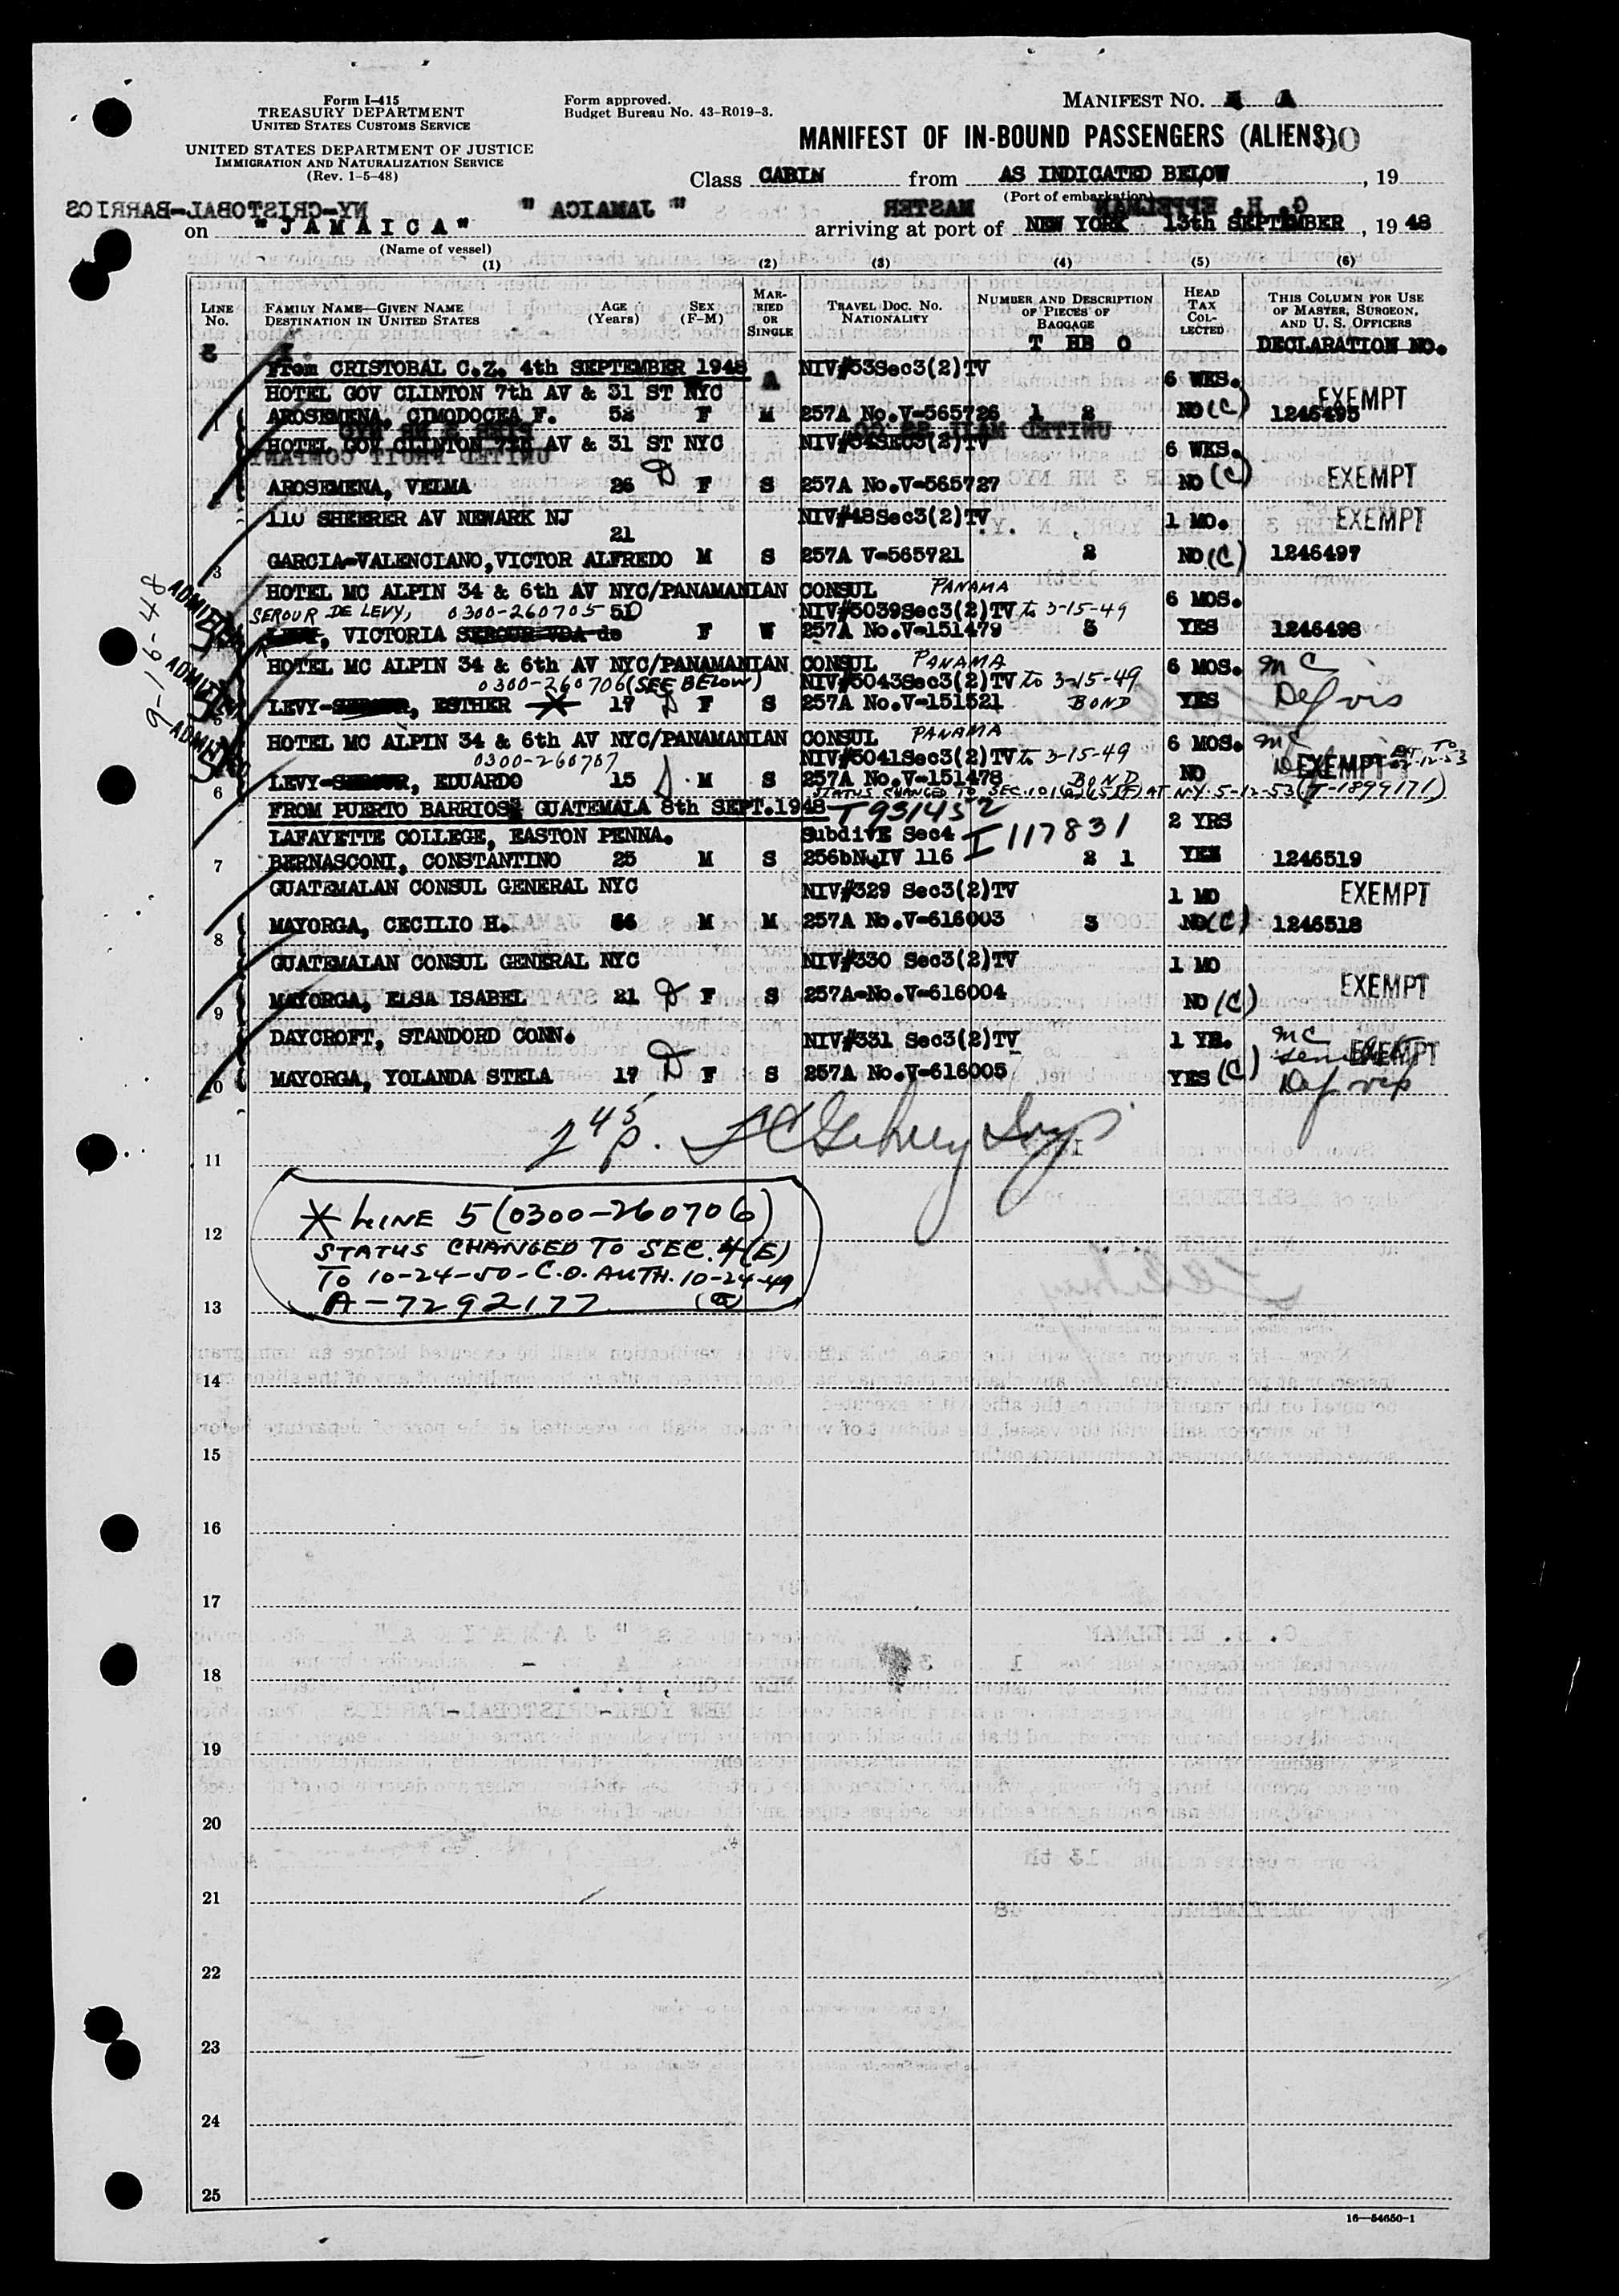 Form I-415
TREASURY DEPARTMENT
UNITED STATES CUSTOMS SERVICE
UNITED STATES DEPARTMENT OF JUSTICE
IMMIGRATION AND NATURALIZATION SERVICE
(Rev. 1-5-48)
Form approved.
Budget Bureau No. 43-R019-3.
MANIFEST NO. A
MANIFEST OF IN-BOUND PASSENGERS (ALIENS)
Class CABIN from AS INDICATED BELOW, 19
(Port of embarkation)
on "JAMAICA" arriving at port of NEW YORK 13th SEPTEMBER, 1948
(Name of vessel)
(1) (2) (3) (4) (5) (6)
LINE No.
FAMILY NAME—GIVEN NAME
DESTINATION IN UNITED STATES
AGE (Years)
SEX (F-M)
MARRIED OR SINGLE
TRAVEL DOC. NO.
NATIONALITY
NUMBER AND DESCRIPTION OF PIECES OF BAGGAGE
T HB O
HEAD TAX COLLECTED
THIS COLUMN FOR USE OF MASTER, SURGEON, AND U. S. OFFICERS
DECLARATION NO.
From CRISTOBAL C.Z. 4th SEPTEMBER 1948 NIV#53Sec3(2)TV
HOTEL GOV CLINTON 7th AV & 31 ST NYC A 6 WKS. EXEMPT
1 AROSEMENA, CIMODOCEA F. 52 F M 257A No.V-565726 1 2 NO (C) 1246495
HOTEL GOV CLINTON 7th AV & 31 ST NYC NIV#54SEC3(2)TV 6 WKS.
AROSEMENA, VELMA 26 D F S 257A No.V-565727 NO (C) EXEMPT
110 SHEERER AV NEWARK NJ NIV#48Sec3(2)TV 1 MO. EXEMPT
21
3 GARCIA-VALENCIANO, VICTOR ALFREDO M S 257A V-565721 2 NO (C) 1246497
HOTEL MC ALPIN 34 & 6th AV NYC/PANAMANIAN CONSUL PANAMA
SEROUR DE LEVY, 0300-260705 51 NIV#5039Sec3(2)TV to 3-15-49 6 MOS.
LEVY, VICTORIA SEROUR VDA de F W 257A No.V-151479 5 YES 1246498
HOTEL MC ALPIN 34 & 6th AV NYC/PANAMANIAN CONSUL PANAMA 6 MOS. MC
0300-260706 (SEE BELOW) NIV#5043Sec3(2)TV to 3-15-49
5 LEVY-SEROUR, ESTHER * 17 D F S 257A No.V-151521 BOND YES Def vis
HOTEL MC ALPIN 34 & 6th AV NYC/PANAMANIAN CONSUL PANAMA 6 MOS. MC
0300-260707 NIV#5041Sec3(2)TV to 3-15-49 EXEMPT
6 LEVY-SEROUR, EDUARDO 15 M S 257A No.V-151478 BOND NO
STATUS CHANGED TO SEC. AT N.Y. 5-12-53 (T-1899171)
FROM PUERTO BARRIOS GUATEMALA 8th SEPT.1948 T931452
LAFAYETTE COLLEGE, EASTON PENNA. SubdivE Sec4 I117831 2 YRS
7 BERNASCONI, CONSTANTINO 25 M S 256bNQIV 116 2 1 YES 1246519
GUATEMALAN CONSUL GENERAL NYC NIV#329 Sec3(2)TV 1 MO EXEMPT
8 MAYORGA, CECILIO H. 56 M M 257A No.V-616003 3 NO (C) 1246518
GUATEMALAN CONSUL GENERAL NYC NIV#330 Sec3(2)TV 1 MO
9 MAYORGA, ELSA ISABEL 21 D F S 257A-No.V-616004 NO (C) EXEMPT
DAYCROFT, STANDORD CONN. NIV#331 Sec3(2)TV 1 YR. MC EXEMPT
10 MAYORGA, YOLANDA STELA 17 D F S 257A No.V-616005 YES (C) Def vis
ADMITTED
ADMITTED
ADMITTED
9-16-48
245 p.
11
* LINE 5 (0300-260706)
12
STATUS CHANGED TO SEC. 4(E)
TO 10-24-50-C.O. AUTH. 10-24-49
A-7292177
13
14
15
16
17
18
19
20
21
22
23
24
25
16—54650-1